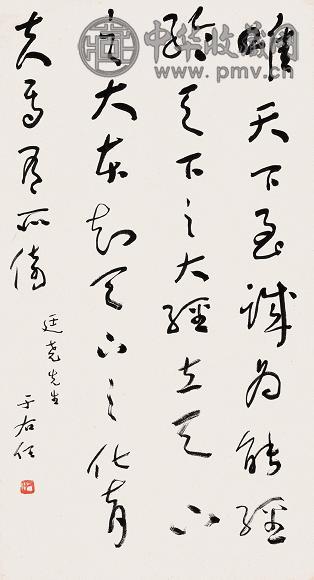 中华收藏网
www.pmv.cn
唯天下至誠為能經
綸天下之大經立天下
之大本知天下之化育
夫焉有所倚
廷堯先生
于右任